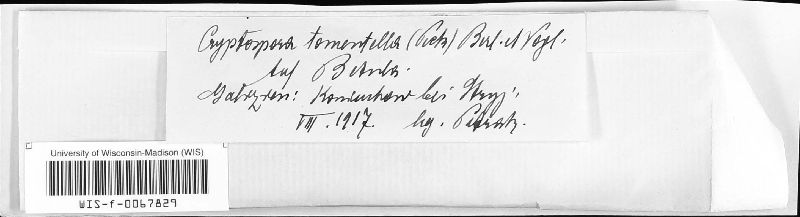 Cryptospora tomentella (Peck) Berl. et Vogl.
Auf Betula.
Galizien: Koniuchow bei Stryj.
VIII. 1917. lg. Petrak.
University of Wisconsin-Madison (WIS)
WIS-f-0067829